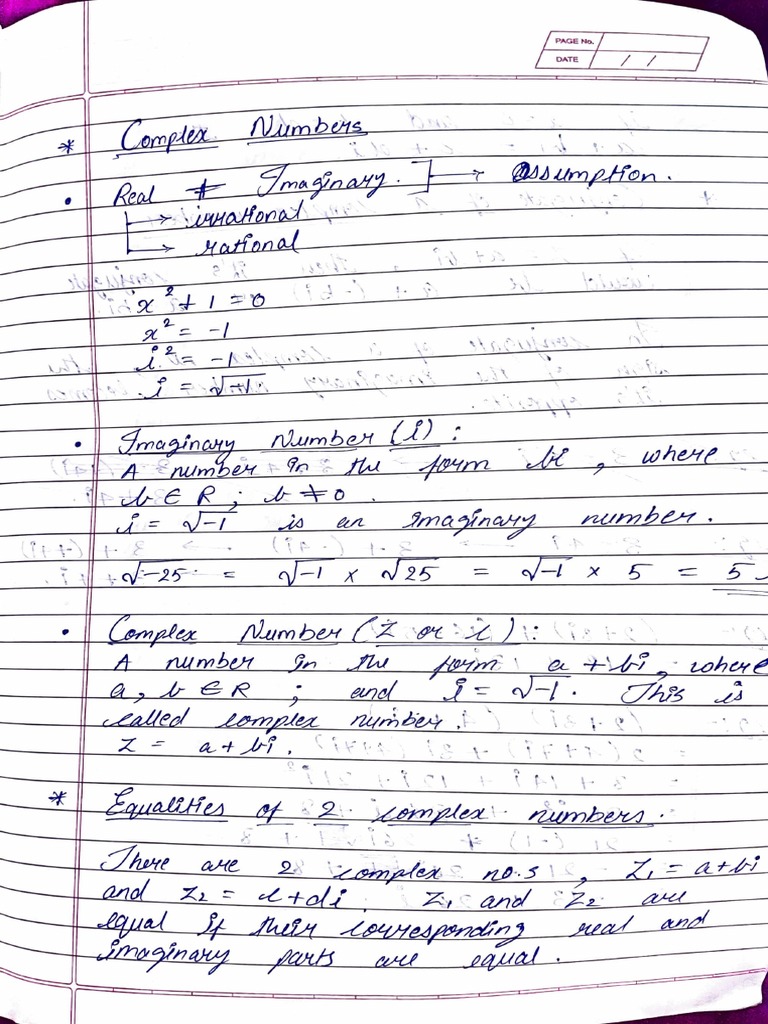 PAGE No.
DATE / /
* Complex Numbers
• Real ≠ Imaginary. → Assumption.
→ irrational
→ rational
x² + 1 = 0
x² = -1
i² = -1
i = √-1
• Imaginary Number (i) :
A number in the form bi, where
b ∈ R ; b ≠ 0.
i = √-1 is an imaginary number.
√-25 = √-1 × √25 = √-1 × 5 = 5
• Complex Number (Z or c) :
A number in the form a + bi, where
a, b ∈ R ; and i = √-1. This is
called complex number.
Z = a + bi.
* Equalities of 2 complex numbers.
There are 2 complex no.s, Z₁ = a + bi
and Z₂ = c + di. Z₁ and Z₂ are
equal if their corresponding real and
imaginary parts are equal.